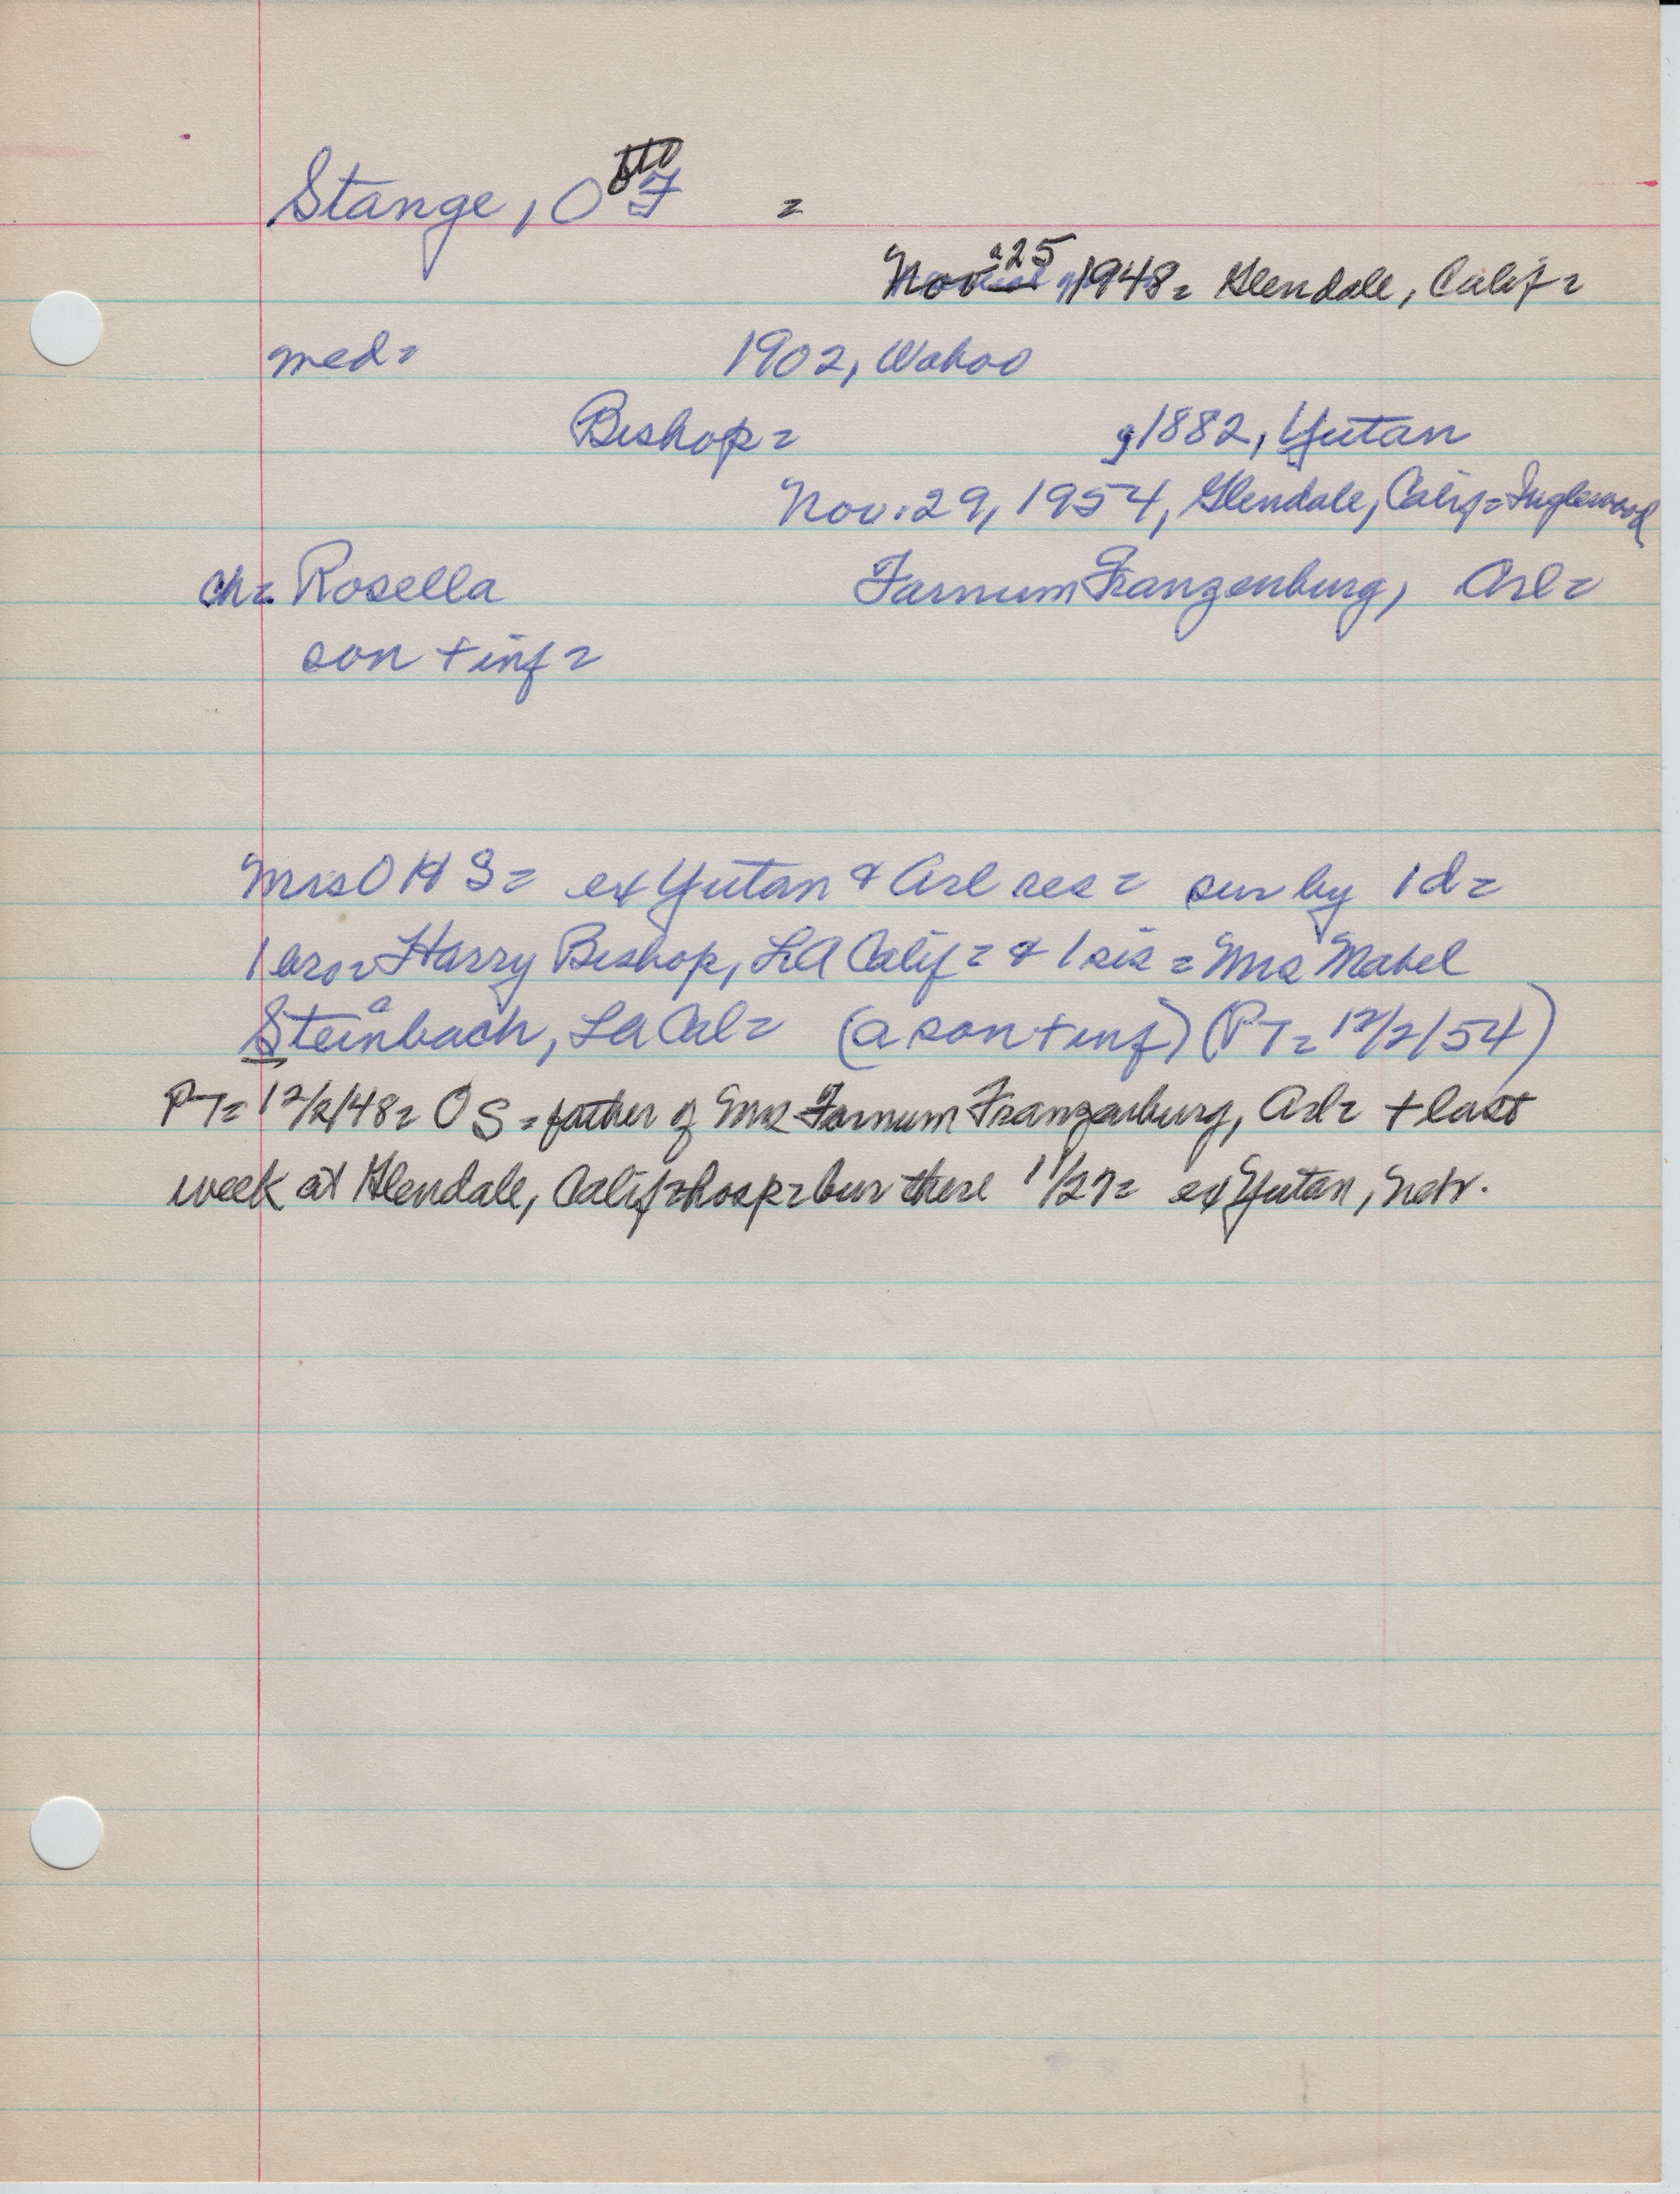 Stange, Otto F =
Nov 25 1948 = Glendale, Calif =
med = 1902, Wahoo
Bishop = 1882, Yutan
Nov. 29, 1954, Glendale, Calif = Inglewood
ch = Rosella Farnum Franzenburg, Arl =
son + inf =
Mrs O H S = ex Yutan & Arl res = sur by 1 d =
1 bro = Harry Bishop, LA Calif = & 1 sis = Mrs Mabel
Steinbach, LA Cal = (a son + inf) (PT = 12/2/54)
PT = 12/2/48 = O S = father of Mrs Farnum Franzenburg, Arl = + last
week at Glendale, Calif = hosp = bur there 11/27 = ex Yutan, Nebr.